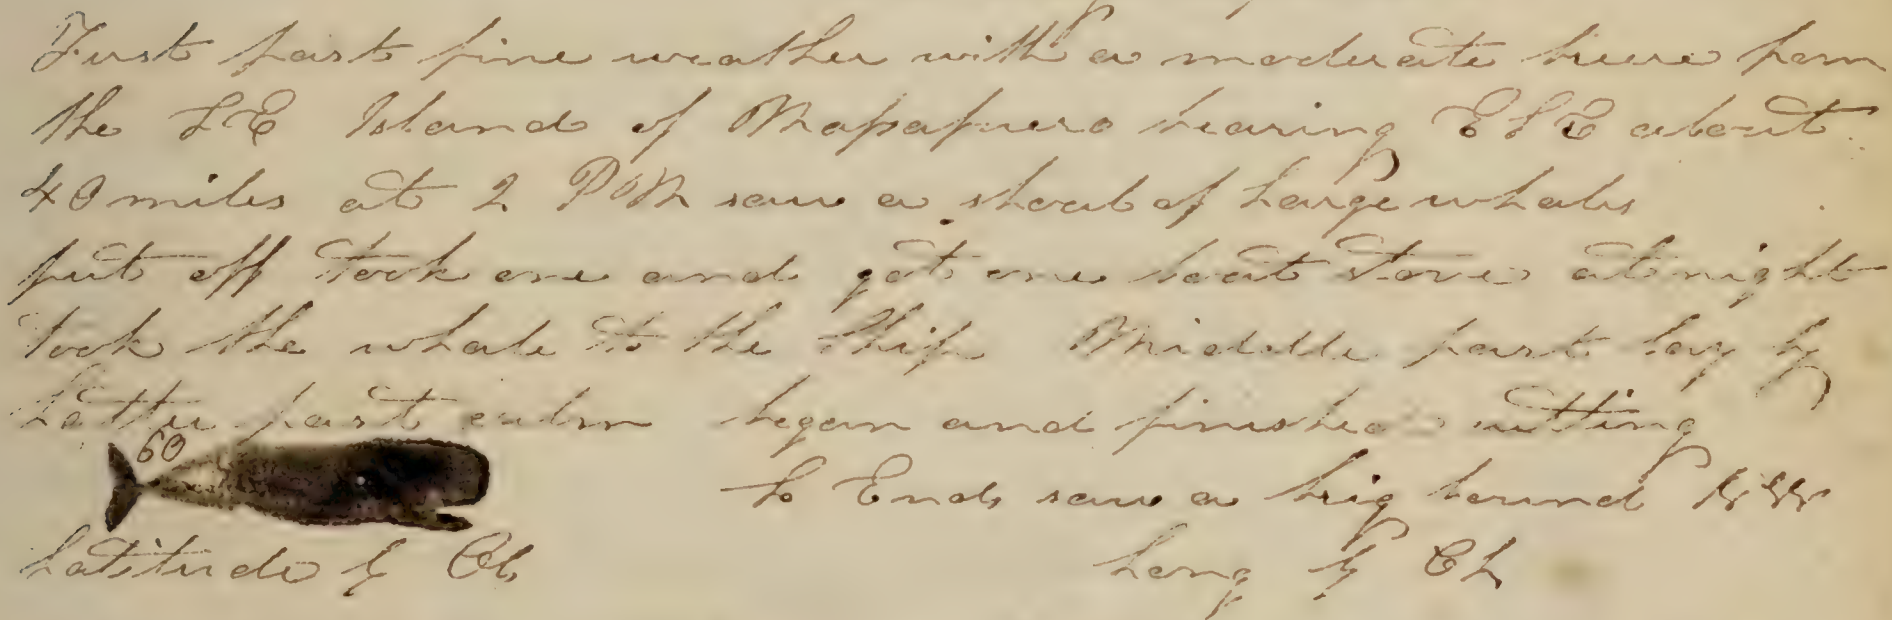 First part fine weather with a moderate breeze from
the SE Island of Mapafuero bearing ESE about
40 miles at 2 PM saw a shoal of Large whales
put off took one and got one boat stove at night
took the whale to the ship Middle part lay by
Latter part calm began and finished cutting
60
So Ends saw a brig bound
Latitude by Ob
Long by Ch